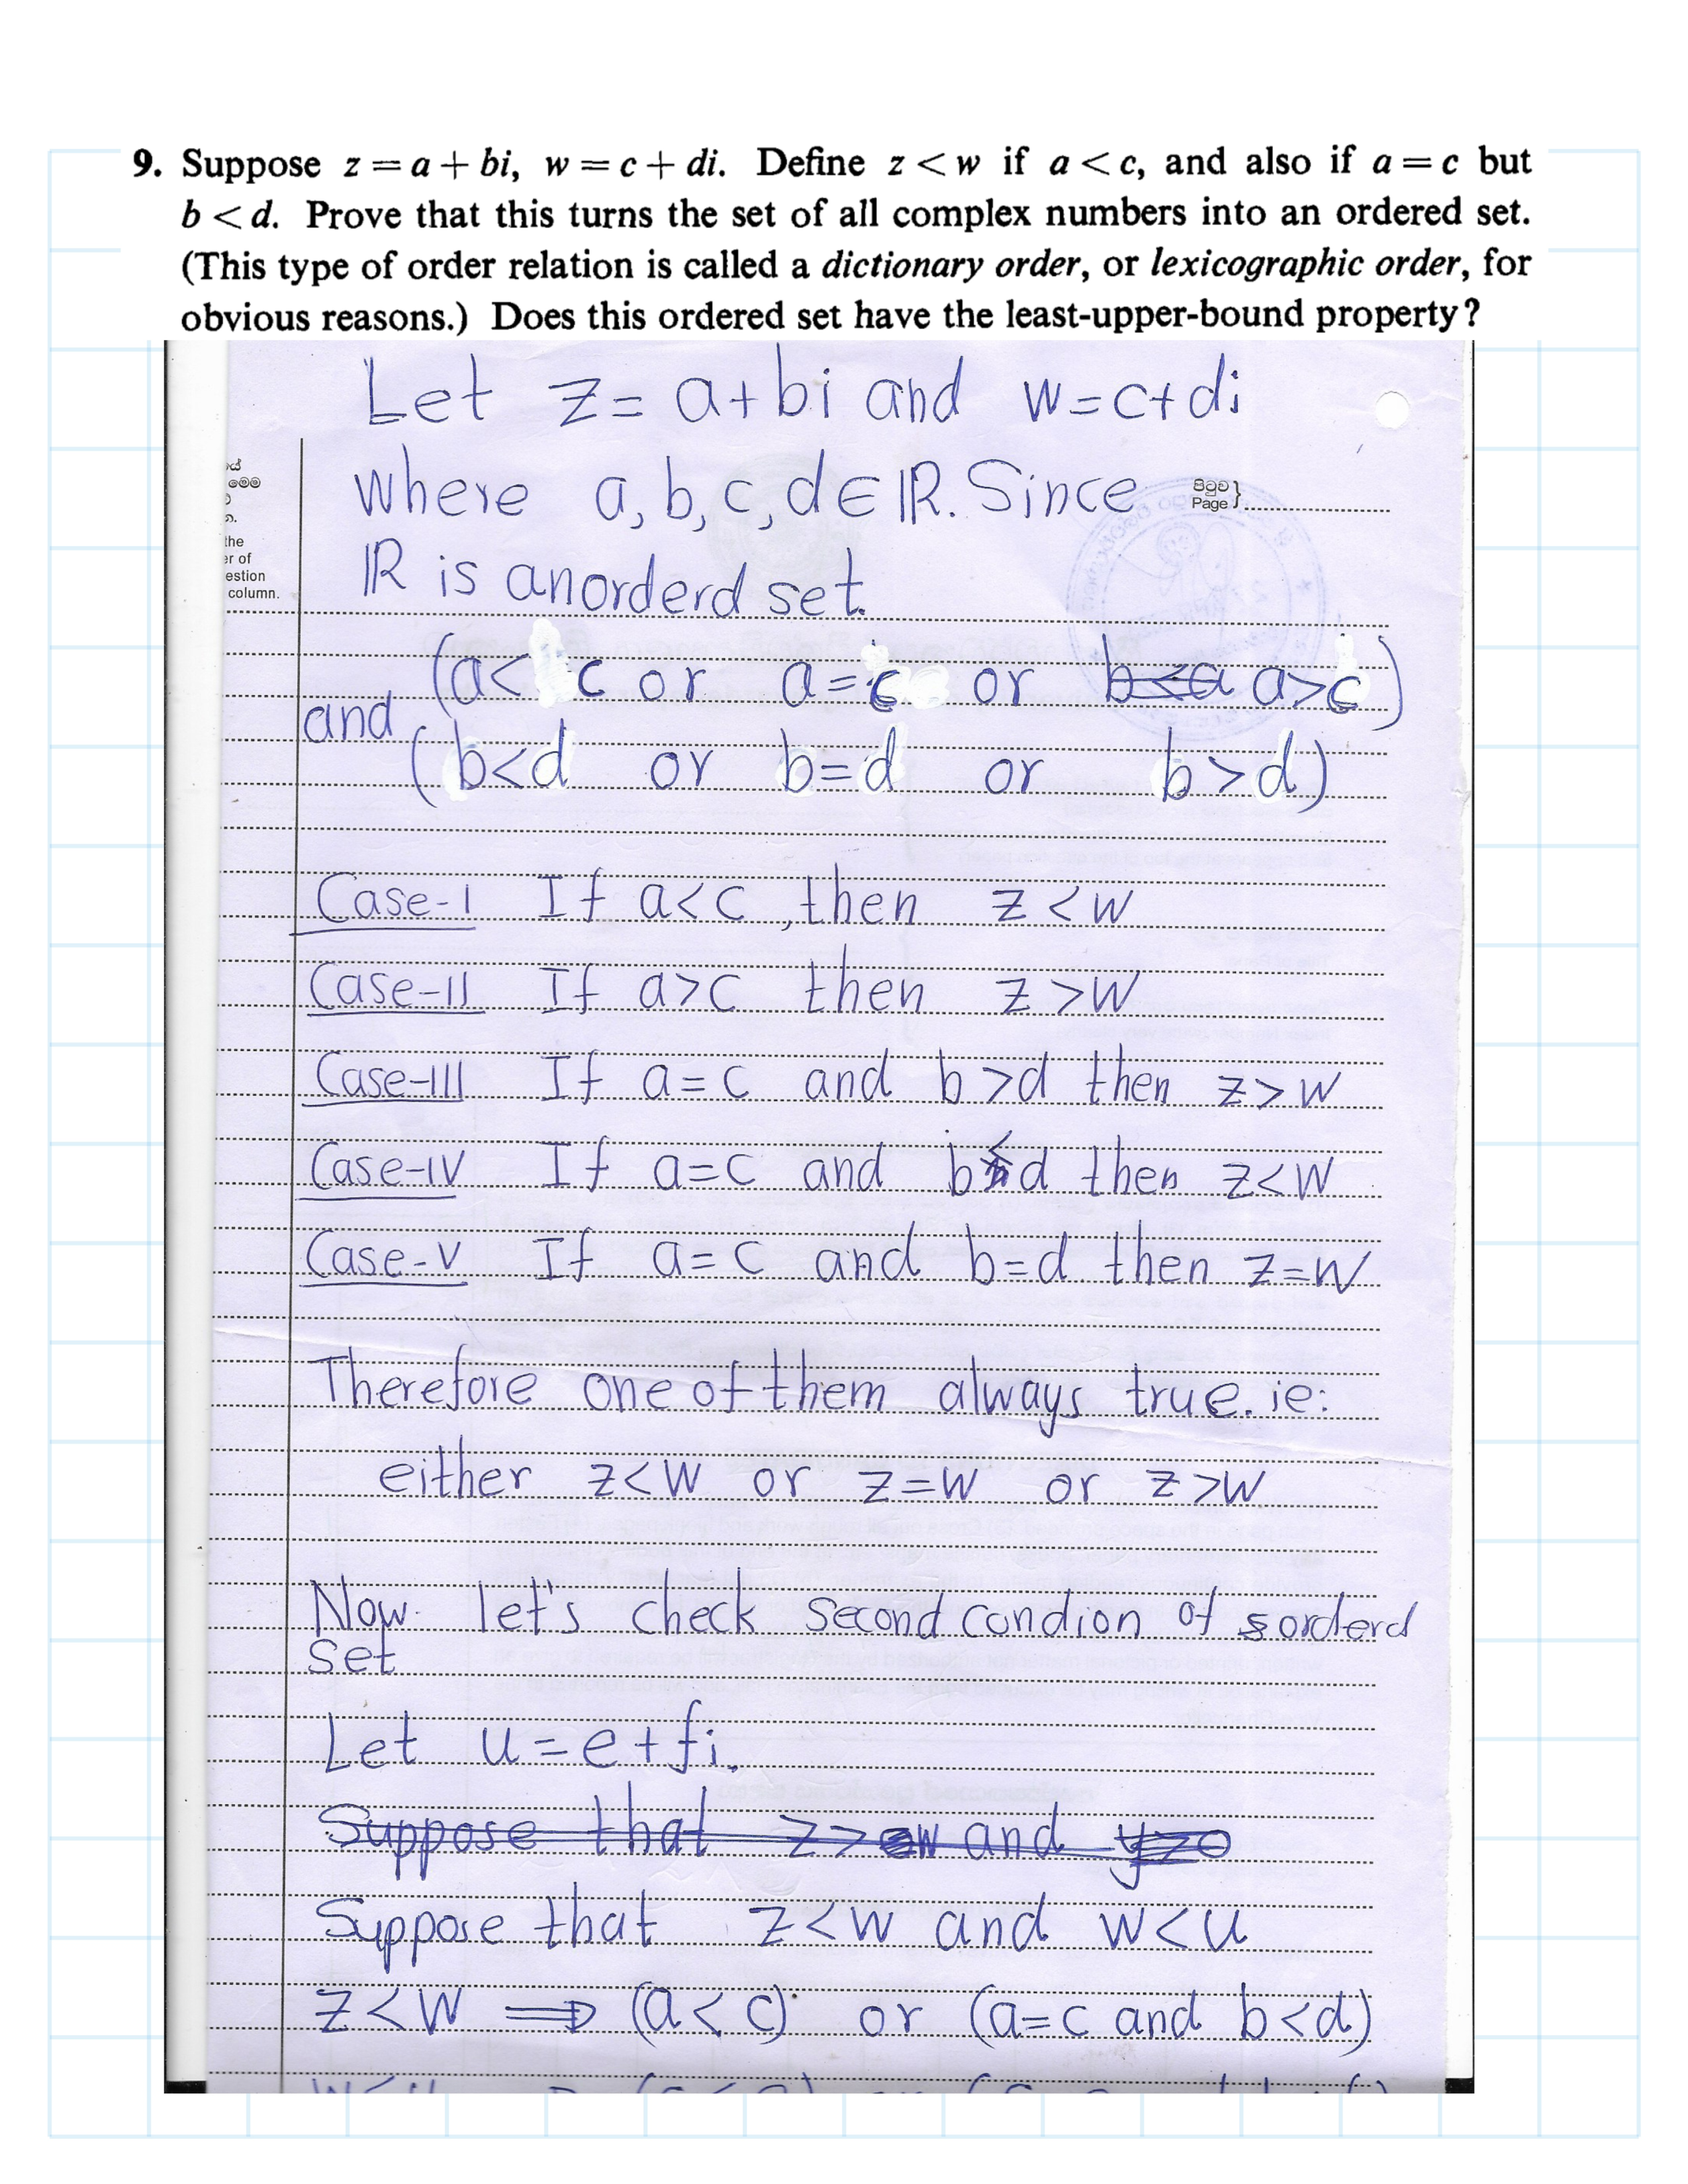 9. Suppose z = a + bi, w = c + di. Define z < w if a < c, and also if a = c but
b < d. Prove that this turns the set of all complex numbers into an ordered set.
(This type of order relation is called a dictionary order, or lexicographic order, for
obvious reasons.) Does this ordered set have the least-upper-bound property?
Let z = a+bi and w=c+di
where a, b, c, d∈ℝ. Since
පිටුව
Page }
මෙම
the
er of
estion
column.
ℝ is an orderd set.
(a< c or a=c or a>c)
and (b<d or b=d or b>d)
Case-I If a<c, then z<w
Case-II If a>c then z>w
Case-III If a=c and b>d then z>w
Case-IV If a=c and b<d then z<w
Case-V If a=c and b=d then z=w
Therefore one of them always true. ie:
either z<w or z=w or z>w
Now let's check second condion of orderd
set
Let u=e+fi.
Suppose that z> w and
Suppose that z<w and w<u
z<w ⟹ (a<c) or (a=c and b<d)